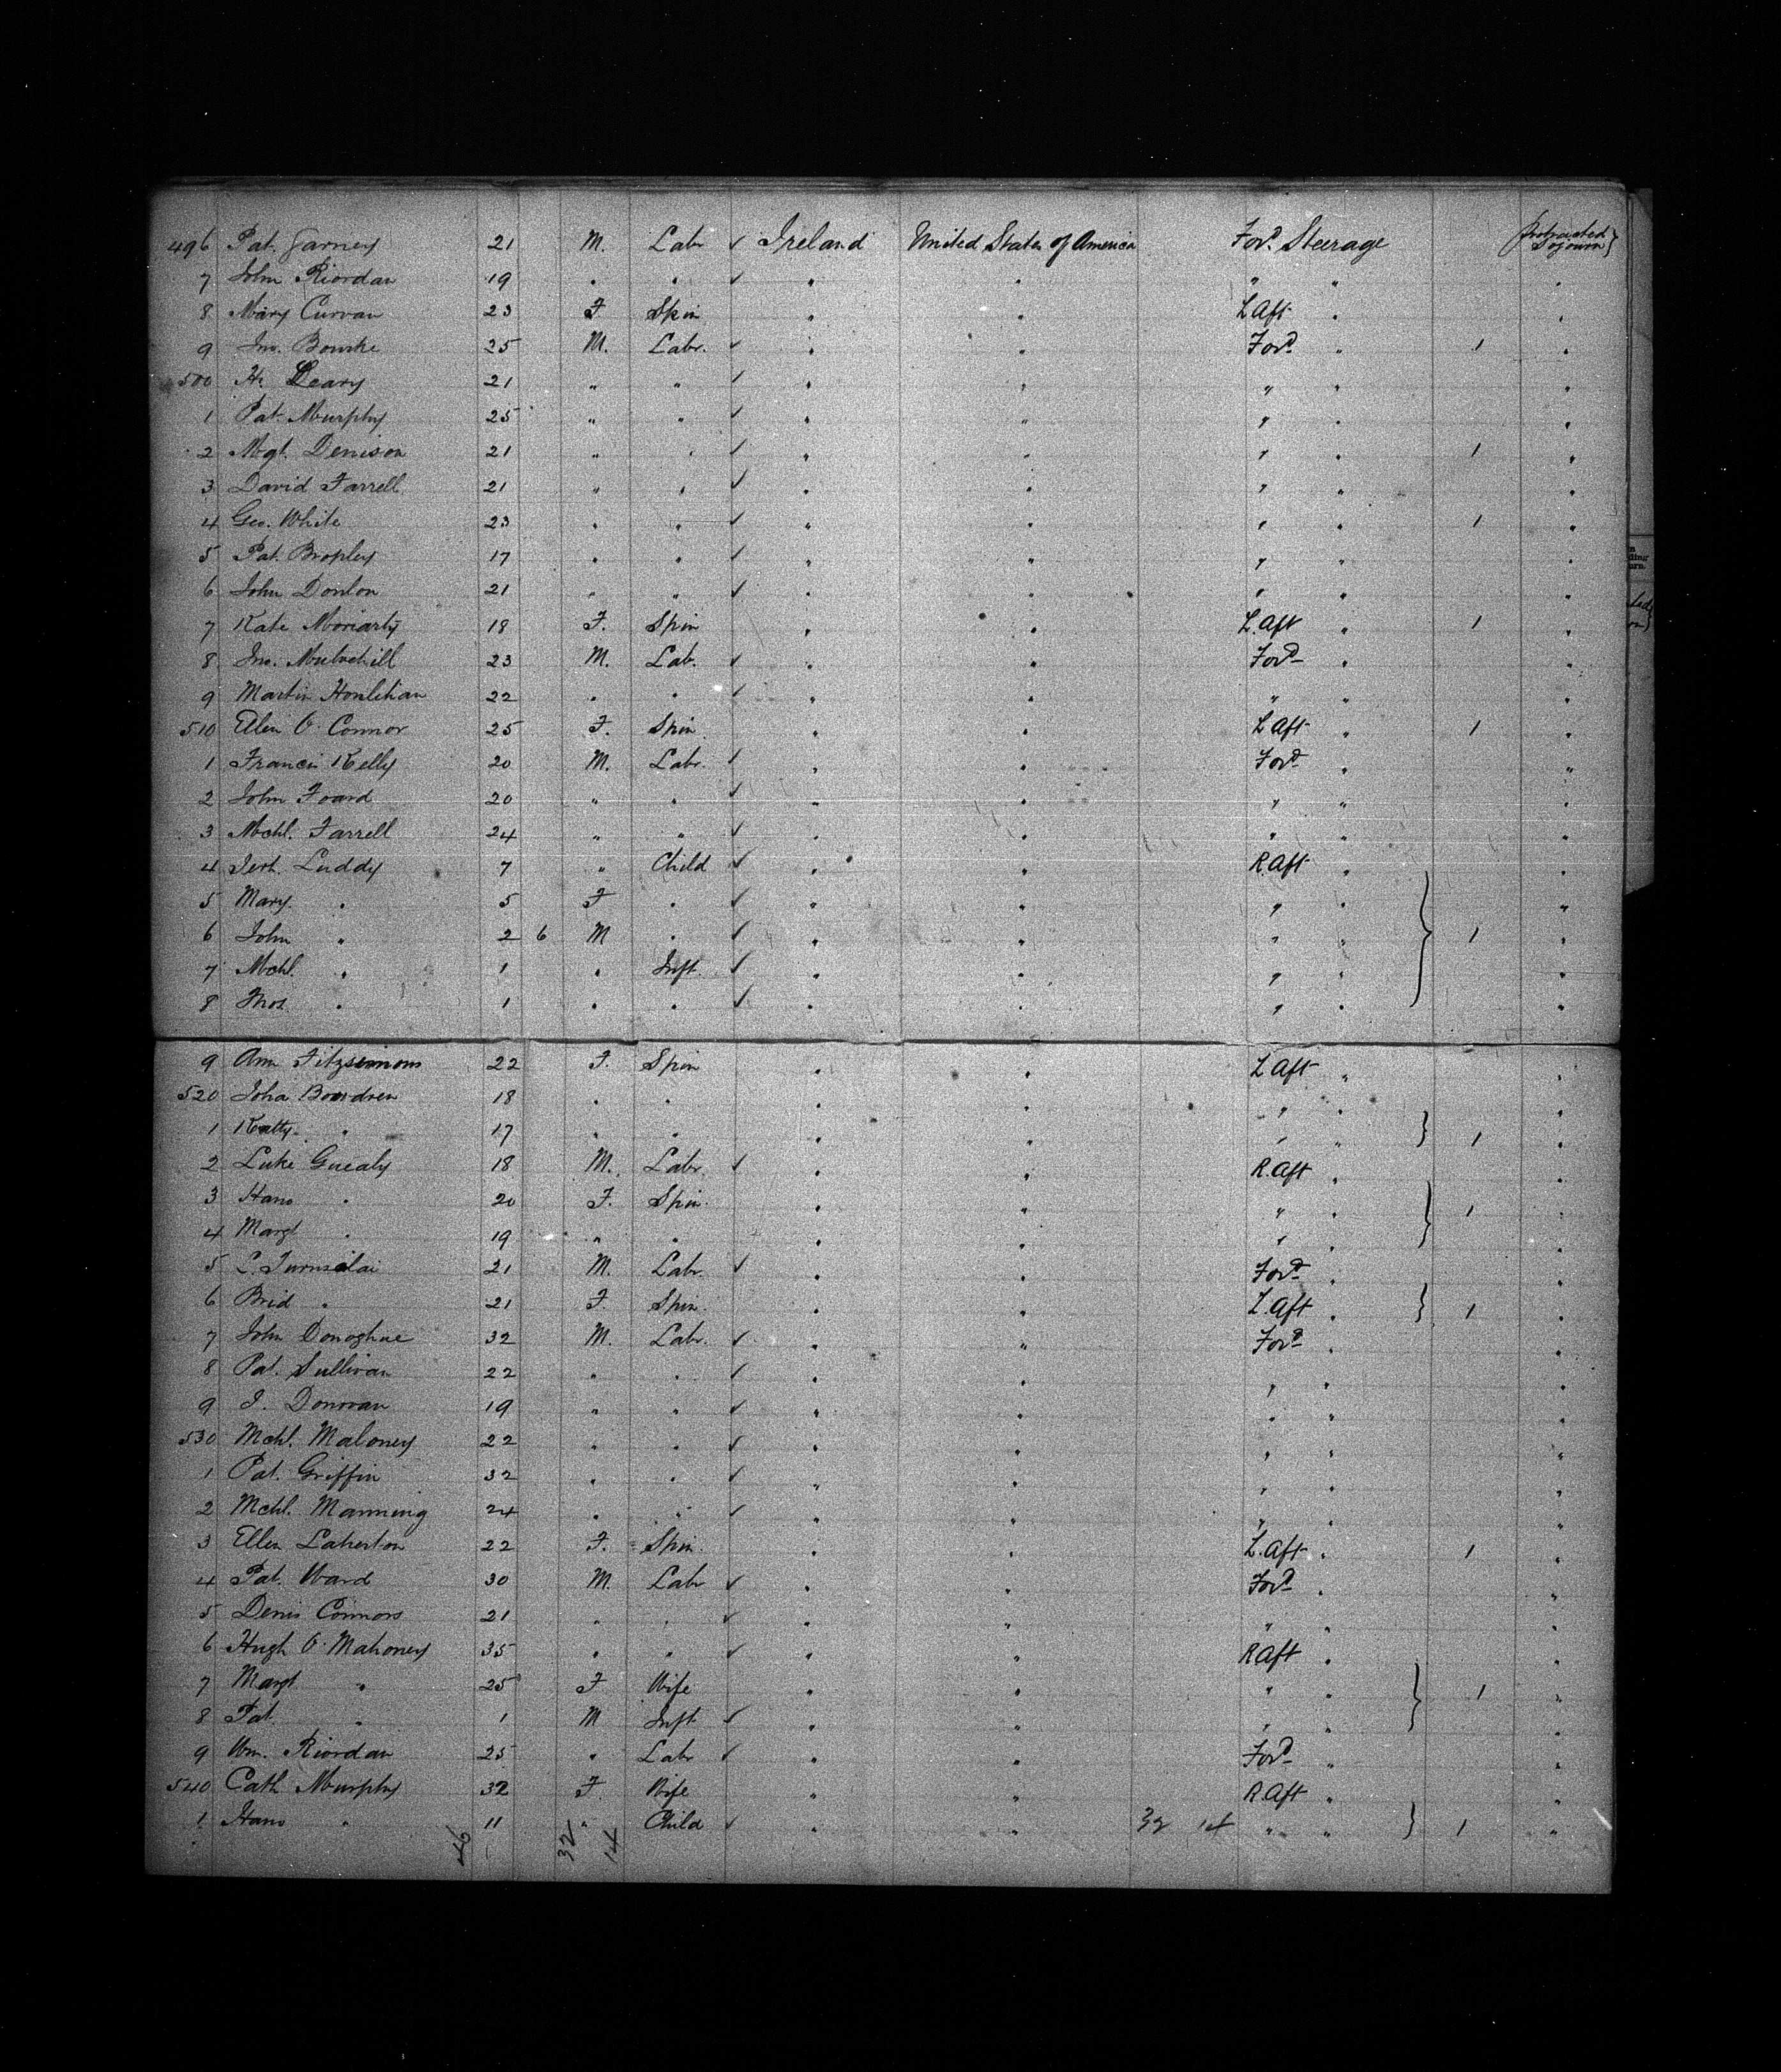 496 Pat. Garney 21 M. Labr ✓ Ireland United States of America Ford. Steerage Protracted Sojourn }
7 John Riordan 19 " " ✓ " " " " "
8 Mary Curran 23 F Spin " " L Aft " "
9 Jno. Bourke 25 M. Labr. ✓ " " Ford " 1 "
500 Hy. Leary 21 " " ✓ " " " " "
1 Pat Murphy 25 " " ✓ " " " " "
2 Mgt. Denison 21 " " ✓ " " " " 1 "
3 David Farrell 21 " " ✓ " " " " "
4 Geo. White 23 " " ✓ " " " " 1 "
5 Pat. Brophy 17 " " ✓ " " " " "
6 John Donlon 21 " " ✓ " " " " "
7 Kate Moriarty 18 F. Spin " " L. Aft " 1 "
8 Jno. Mulvihill 23 M. Lab. ✓ " " Ford " "
9 Martin Honlehan 22 " " ✓ " " " " "
510 Ellen O'Connor 25 F. Spin. " " L Aft " 1 "
1 Francis Kelly 20 M. Labr. ✓ " " Ford " "
2 John Foard 20 " " ✓ " " " " "
3 Mchl. Farrell 24 " " ✓ " " " " "
4 Jerh. Luddy 7 " Child ✓ " " R. Aft " "
5 Mary " 5 F " ✓ " " " " "
6 John " 2 6 M " ✓ " " " " } 1 "
7 Mchl. " 1 " Inft. ✓ " " " " "
8 Thos. " 1 " " ✓ " " " " "
9 Ann Fitzsimons 22 F. Spin " " L Aft " "
520 Joha Bowdren 18 " " " " " " "
1 Katty " 17 " " " " " " } 1 "
2 Luke Guealy 18 M. Labr. ✓ " " R. Aft " "
3 Hano " 20 F. Spin. " " " " } 1 "
4 Margt " 19 " " " " " " "
5 21 M. Labr. ✓ " " Ford " "
6 Brid " 21 F. Spin. " " L. Aft " } 1 "
7 John Donoghue 32 M. Labr. ✓ " " Ford " "
8 Pat. Sullivan 22 " " ✓ " " " " "
9 J. Donovan 19 " " ✓ " " " " "
530 Mchl. Maloney 22 " " ✓ " " " " "
1 Pat. Griffin 32 " " ✓ " " " " "
2 Mchl. Manning 24 " " ✓ " " " " "
3 Ellen Laherton 22 F. Spin. " " L. Aft " 1 "
4 Pat. Ward 30 M. Labr ✓ " " Ford " "
5 Denis Connors 21 " " ✓ " " " " "
6 Hugh O'Mahoney 35 " " ✓ " " R Aft " "
7 Margt " 25 F Wife " " " " } 1 "
8 Pat " 1 M Inft ✓ " " " " "
9 Wm. Riordan 25 " Labr ✓ " " Ford " "
540 Cath Murphy 32 F. Wife " " R. Aft " "
1 Hano " 11 " Child ✓ " " 32 14 " " } 1 "
46 32 14